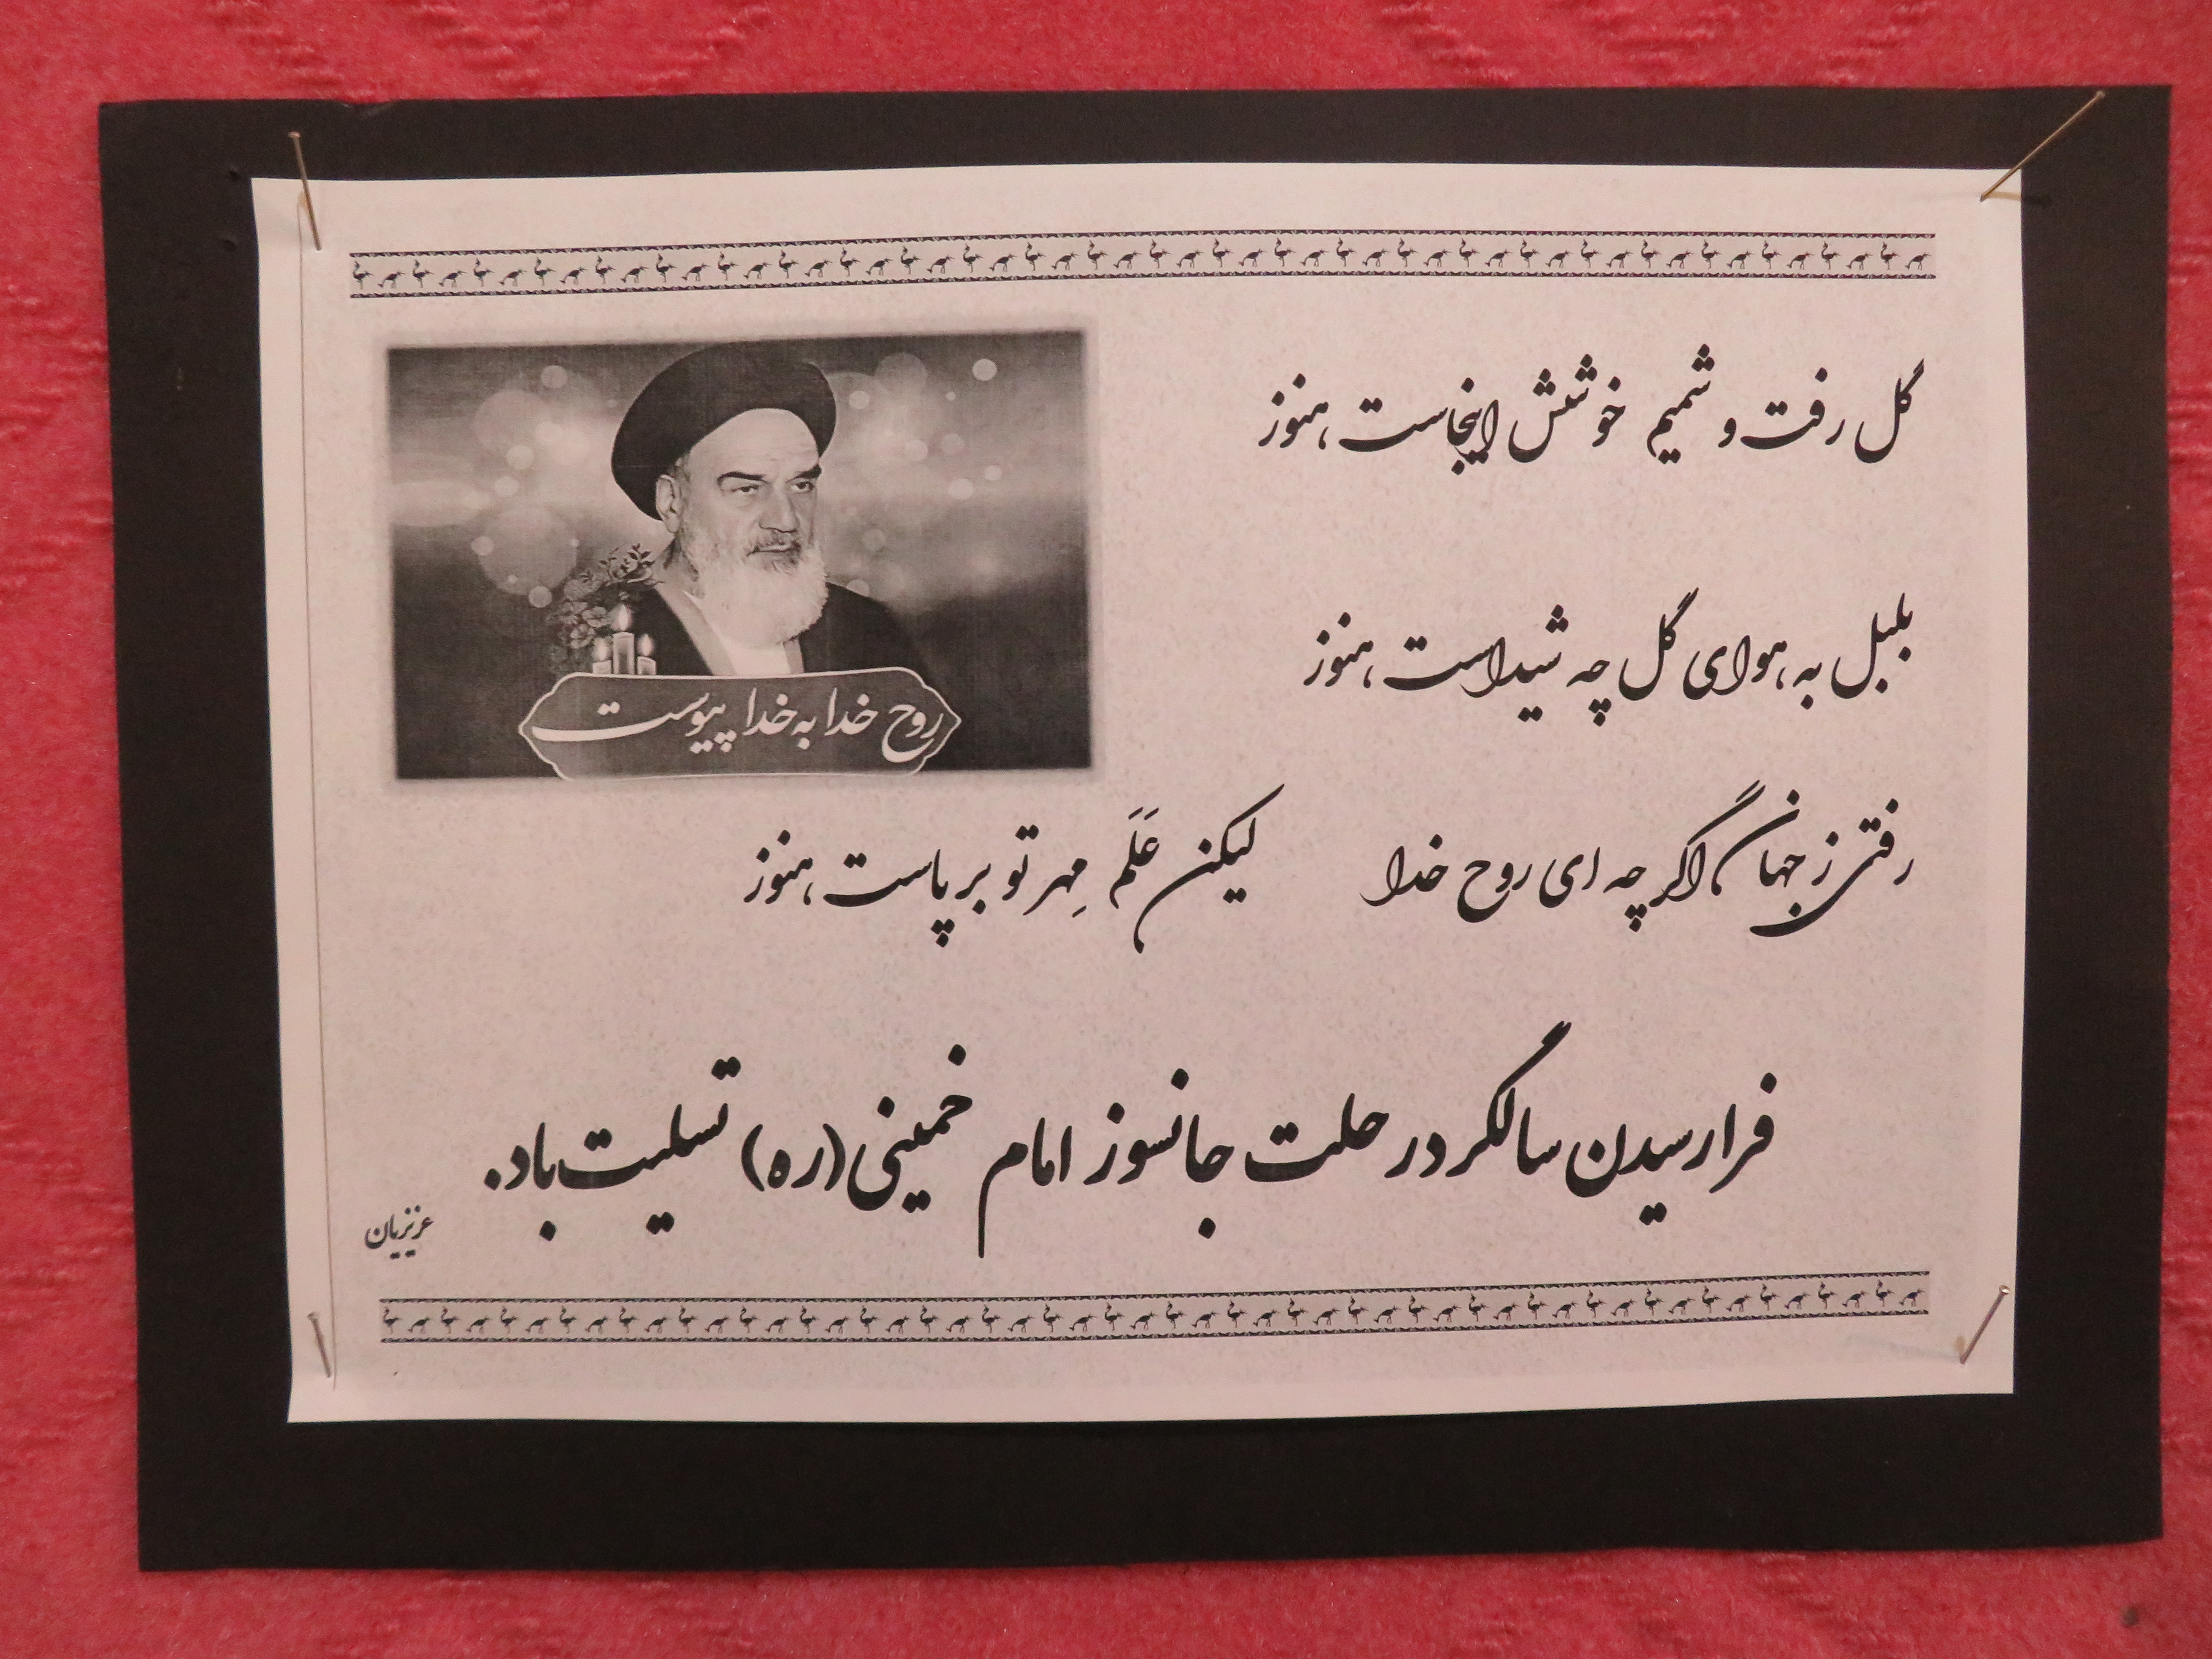 گل رفت و شمیم خوشش اینجاست هنوز
بلبل به هوای گل چه شیداست هنوز
روح خدا به خدا پیوست
رفتی ز جهان اگر چه ای روح خدا لیکن عَلَم مِهر تو بر پاست هنوز
فرا رسیدن سالگرد رحلت جانسوز امام خمینی (ره) تسلیت باد.
عزیزیان